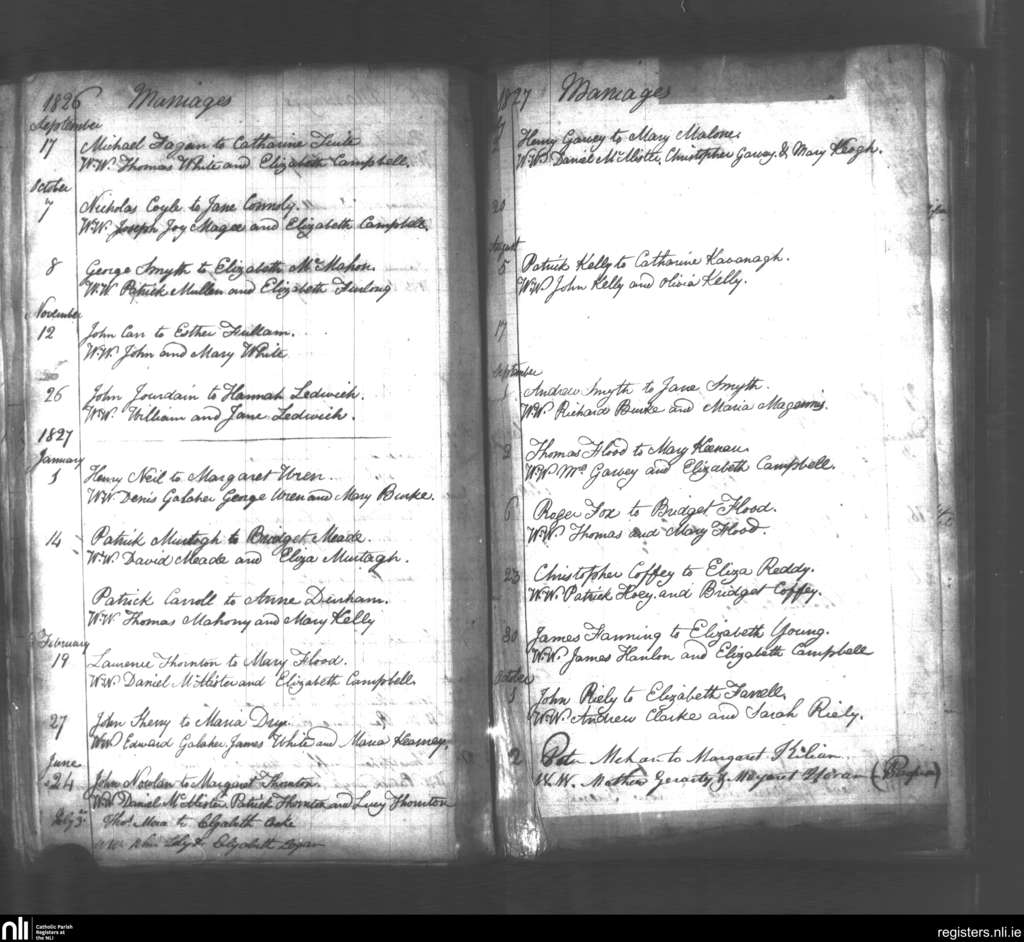 1826 Marriages
September
17 Michael Fagan to Catharine Tuite
W.W. Thomas White and Elizabeth Campbell.
October
7 Nicholas Coyle to Jane Connoly.
W.W. Joseph Joy Magee and Elizabeth Campbell.
8 George Smyth to Elizabeth McMahon.
W.W. Patrick Mullen and Elizabeth Furlong
November
12 John Carr to Esther
W.W. John and Mary White
26 John Jourdain to Hannah Ledwich.
W.W. William and Jane Ledwich.
1827
January
1 Henry Neil to Margaret Wren.
W.W. Denis Galaher George Wren and Mary Burke.
14 Patrick Murtogh to Bridget Meade.
W.W. David Meade and Eliza Murtagh.
Patrick Carroll to Anne Durham.
W.W. Thomas Mahony and Mary Kelly
February
19 Laurence Thornton to Mary Flood.
W.W. Daniel McAlister and Elizabeth Campbell
27 John Sherry to Maria
W.W. Edward Galaher James White and Maria Kearney.
June
24 John Nowlan to Margaret Thornton.
W.W. Daniel McAlister, Patrick Thornton and Lucy Thornton
July 3 Thos to Elizabeth
Elizabeth
1827 Marriages
Henry Garvey to Mary Malone.
W.W. Daniel McAlister, Christopher Garvey, & Mary Keogh.
20
August
5 Patrick Kelly to Catharine Kavanagh.
W.W. John Kelly and Olivia Kelly.
17
September
1 Andrew Smyth to Jane Smyth.
W.W. Richard Burke and Maria
2 Thomas Flood to Mary Keenan.
W.W. Garvey and Elizabeth Campbell.
6 Roger Fox to Bridget Flood.
W.W. Thomas and Mary Flood.
23 Christopher Coffey to Eliza Reddy.
W.W. Patrick Hoey and Bridget Coffey.
30 James Fanning to Elizabeth Young.
W.W. James Hanlon and Elizabeth Campbell
October
1 John Riely to Elizabeth Farrell.
W.W. Andrew Clarke and Sarah Riely.
2 Peter to Margaret
W.W. Mathew Geraty & Margaret
nli Catholic Parish
Registers at
the NLI
registers.nli.ie